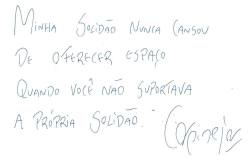 Minha solidão nunca cansou
de oferecer espaço
quando você não suportava
a própria solidão.
Carpinejar